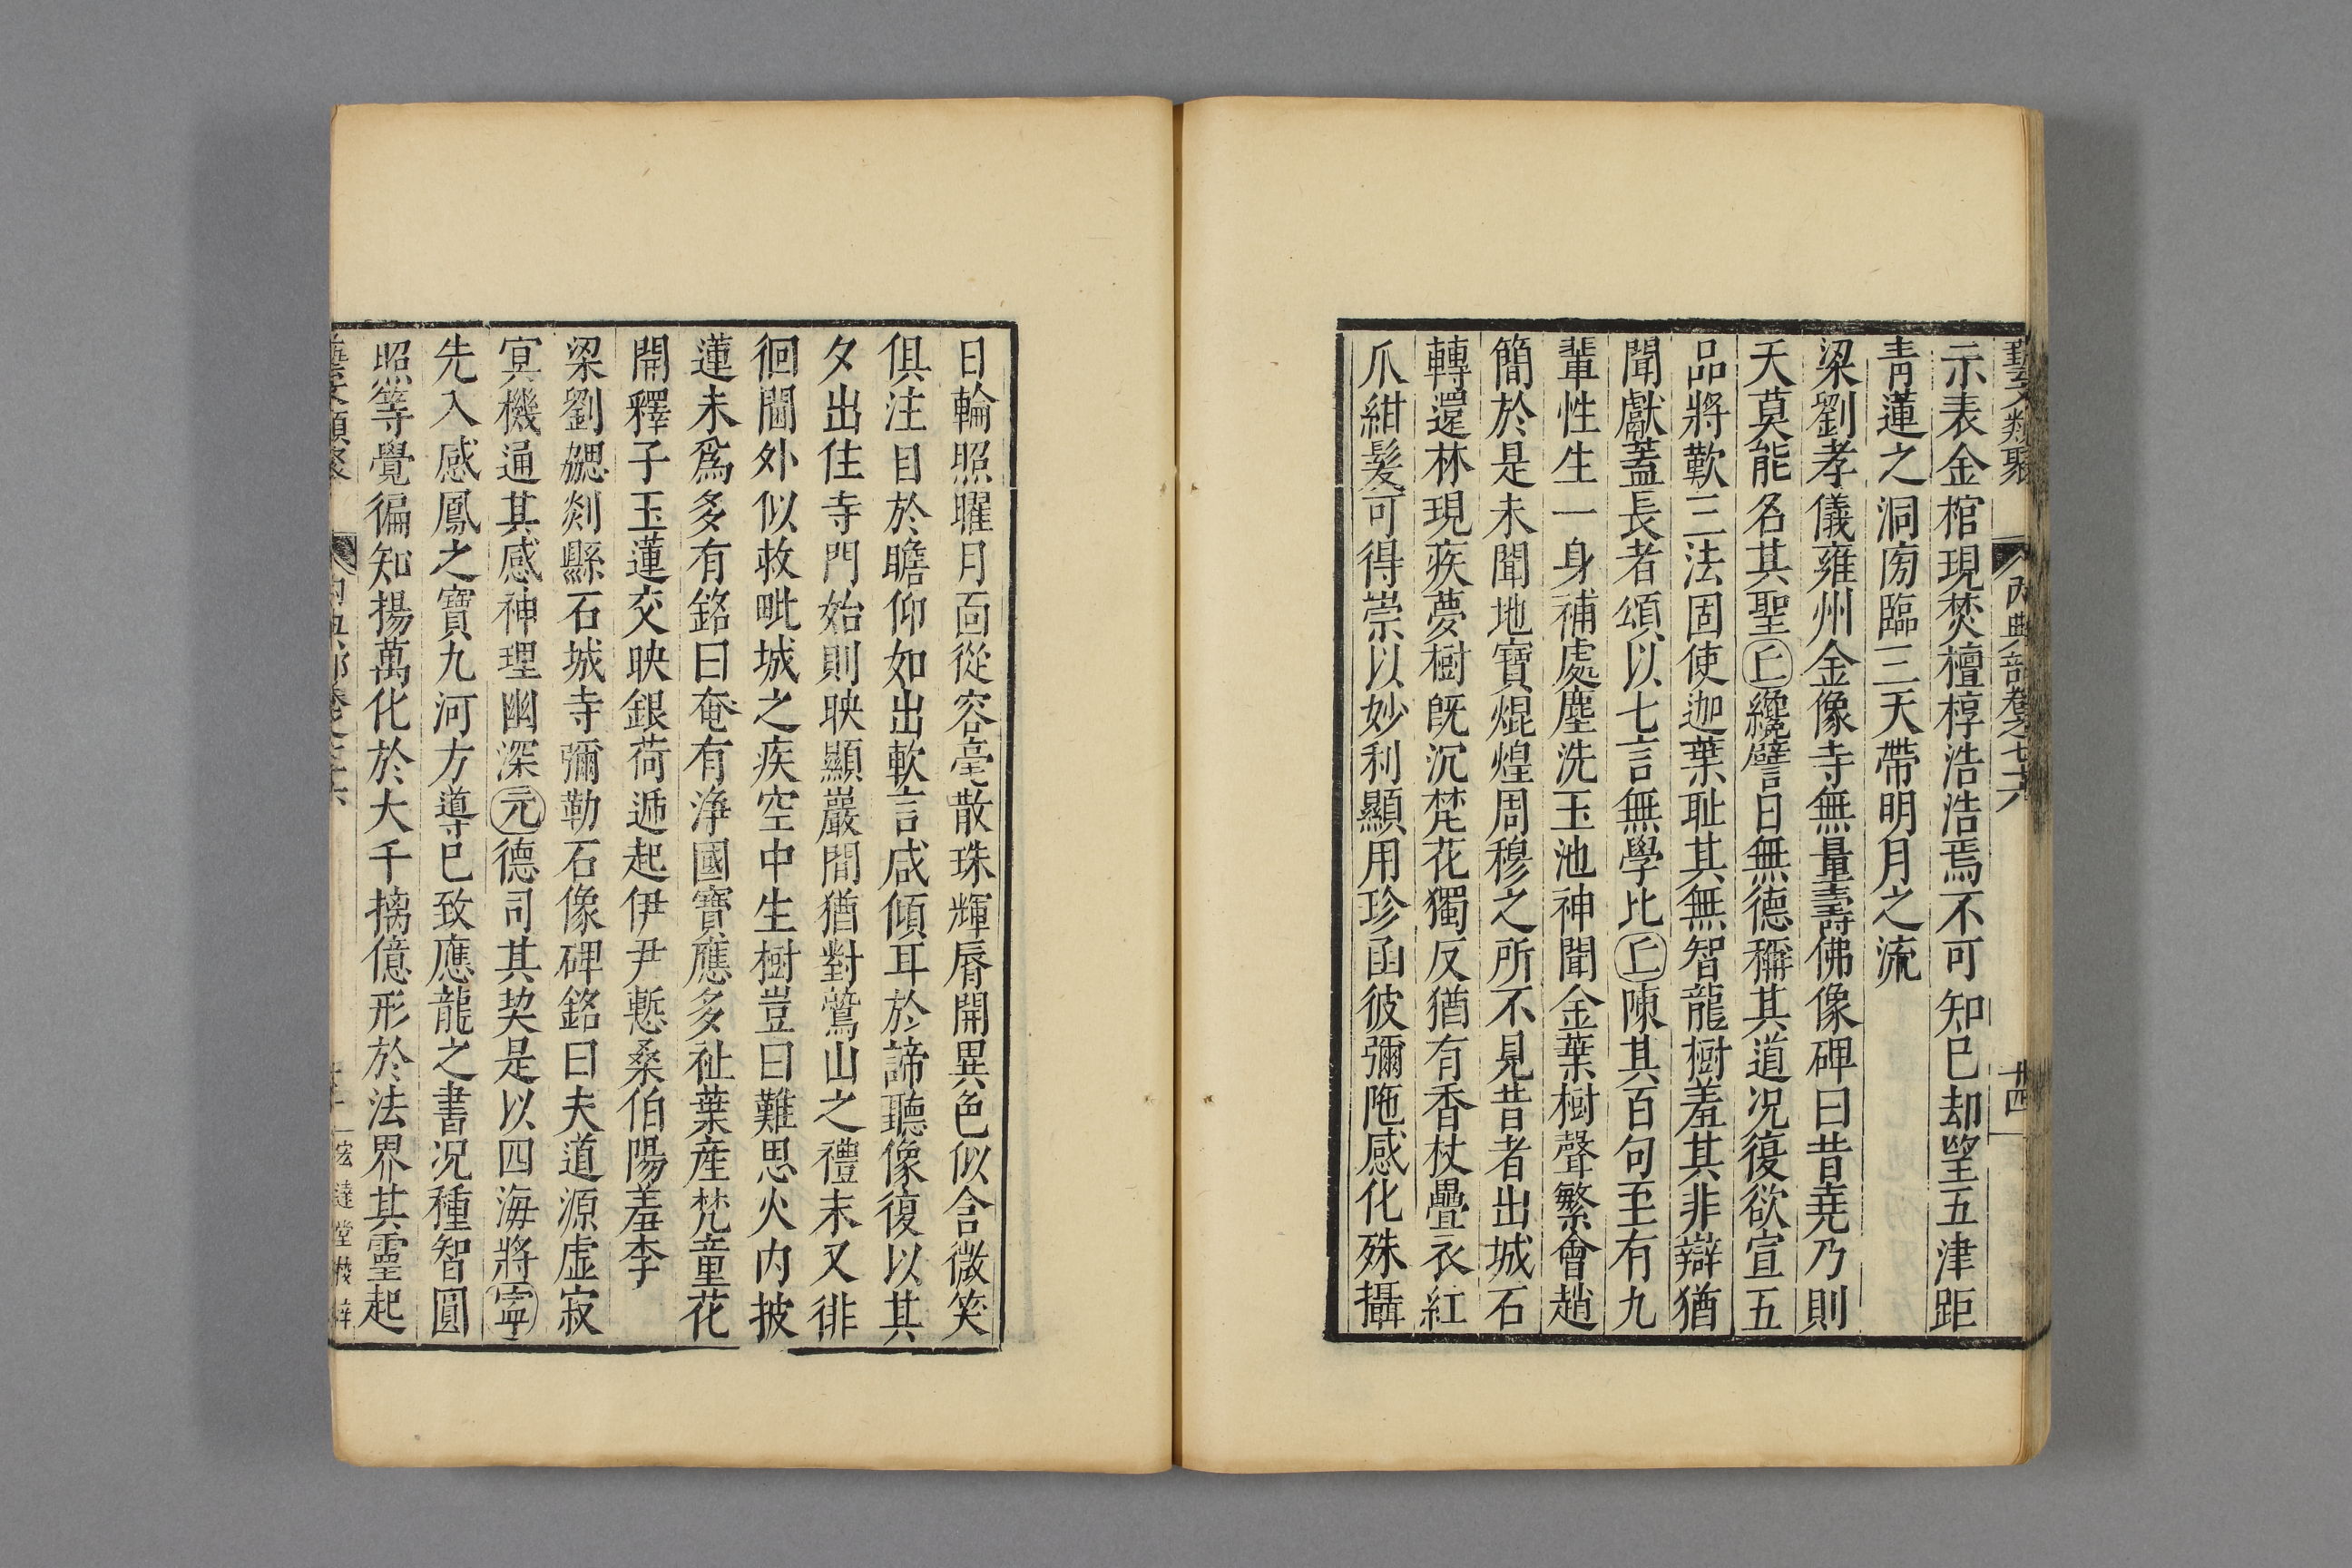 藝文類聚 内典部卷之七十六 廿四
示表金棺現焚檀椁浩浩焉不可知巳却望五津距
青蓮之洞𫝺臨三天帶明月之流
梁劉孝儀雍州金像寺無量壽佛像碑曰昔堯乃則
天莫能名其聖丘纔譬日無德稱其道况復欲宣五
品將歎三法固使迦葉耻其無智龍樹羞其非辯猶
聞獻蓋長者頌以七言無學比丘陳其百句至有九
輩性生一身補處塵洗玉池神聞金葉樹聲繁會趙
簡於是未聞地寶焜煌周穆之所不見昔者出城石
轉還林現疾夢樹旣沉梵花獨反猶有香杖疊衣紅
爪紺髮可得崇以妙利顯用珍函彼彌陁感化殊攝
日輪照曜月面從容毫散珠輝脣開異色似含微笑
俱注目於瞻仰如出軟言咸傾耳於諦聽像復以其
夕出住寺門始則映顯巖間猶對鷲山之禮末又徘
徊閫外似救毗城之疾空中生樹豈曰難思火内披
蓮未爲多有銘曰奄有淨國寶應多祉葉産梵童花
開釋子玉蓮交映銀荷遞起伊尹慙桑伯陽羞李
梁劉勰剡縣石城寺彌勒石像碑銘曰夫道源虛寂
㝠機通其感神理幽深元德司其契是以四海將寧
先入感鳳之寶九河方導巳致應龍之書况種智圓
照等覺徧知揚萬化於大千摛億形於法界其靈起
藝文類聚 内典部卷之七十六 宏達堂棧梓